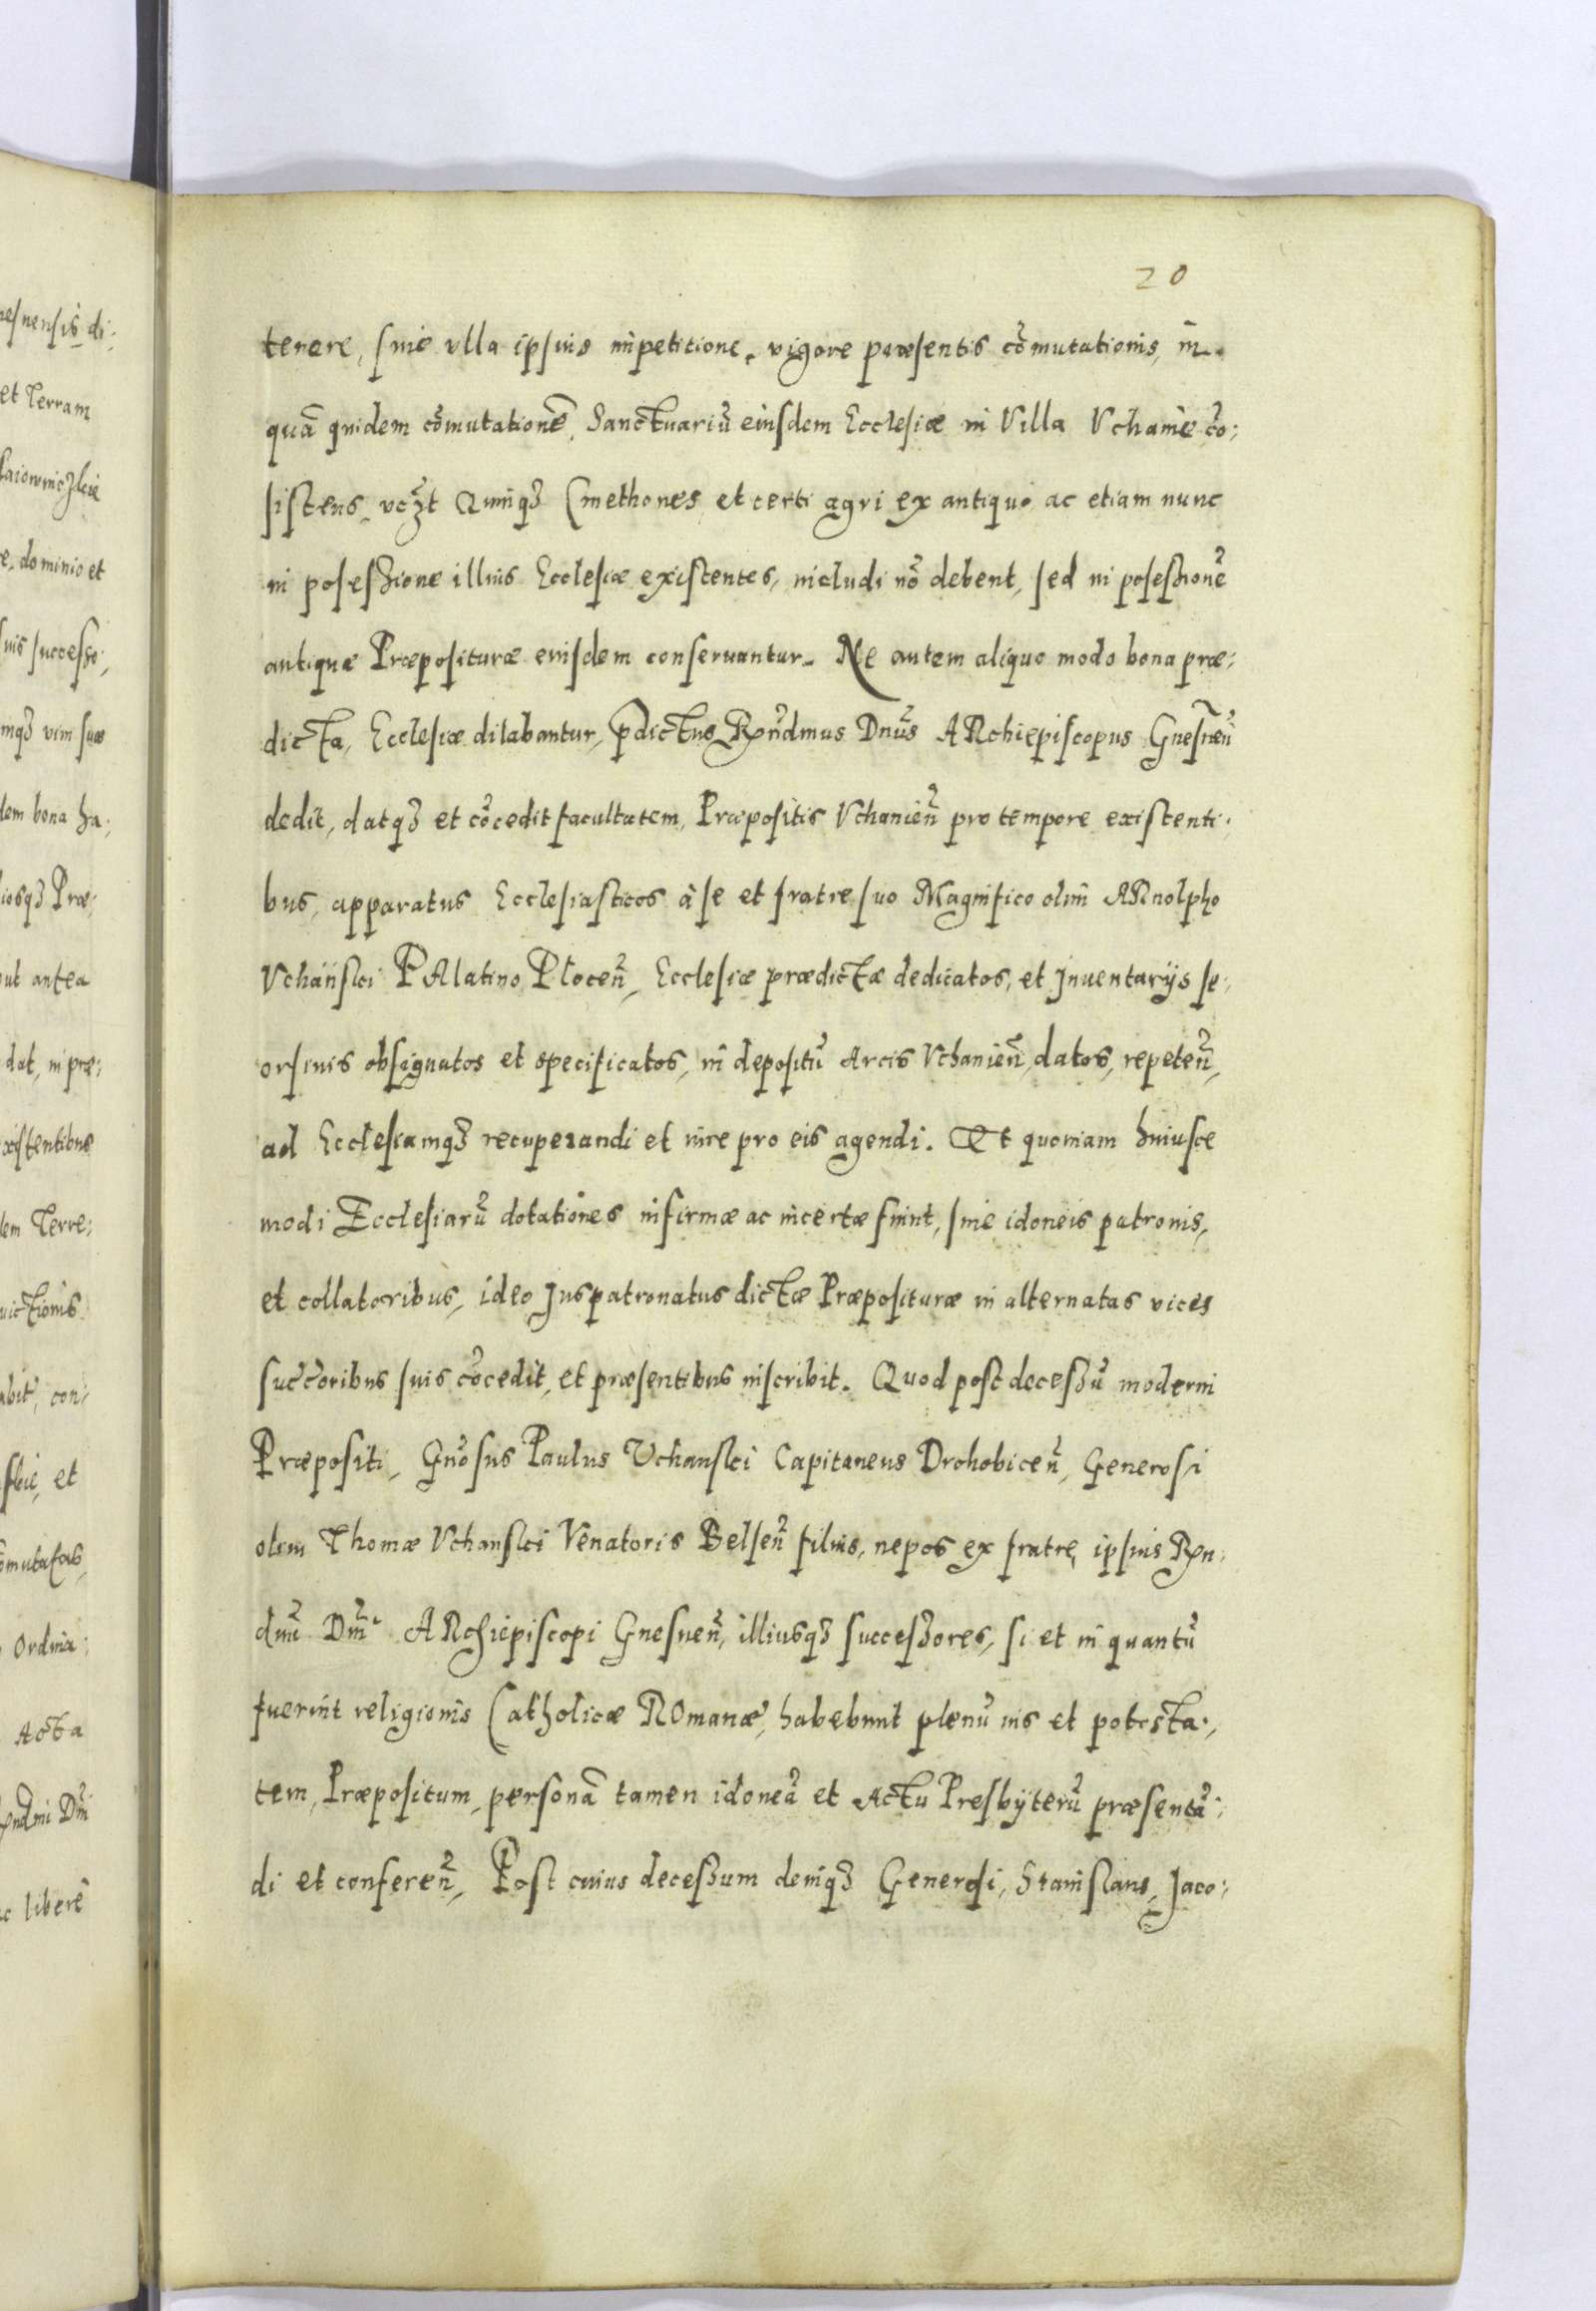 20
tenere, sine ulla ipsius inpetitione, vigore præsentis cōmutationis, in
quā quidem cōmutationē, Sanctuariū eiusdem Ecclesiæ in Villa Vchanie cō:
sistens, vczt Quinqꝫ Cmethones et certi agri ex antiquo ac etiam nunc
in posessione illius Ecclesiæ existentes, includi nō debent, sed in posessionē
antiquæ Præpositurae eiusdem conseruantur. Ne autem aliquo modo bona præ:
dicta, Ecclesiæ dilabantur, p̄dictus Rn̄dmus Dnūs ARchiepiscopus Gnesneñ
dedit, datqꝫ et cōcedit facultatem, Præpositis Vchanieñ pro tempore existenti:
bus, apparatus Ecclesiasticos à se et fratre suo Magnifico olim ARnolpho
Vchańsci PAlatino Ploceñ, Ecclesiæ prædictæ dedicatos, et Inuentarijs se:
orsiuis obsignatos et specificatos, in depositū Arcis Vchanieñ, datos, repeteñ,
ad Ecclesiamqꝫ recuperandi et iure pro eis agendi. Et quoniam huiusce
modi Ecclesiarū dotationes infirmæ ac incertæ fiunt, sine idoneis patronis,
et collatoribus, ideo Juspatronatus dictæ Præposituræ in alternatas vices
succ̄oribus suis cōcedit, et præsentibus inscribit. Quod post decessū moderni
Præpositi, Gn̄osus Paulus Vchansci Capitaneus Drohobiceñ, Generosi
olim Thomæ Vchansci Venatoris Belseñ filius, nepos ex fratre, ipsius Rn:
dmi Dñi ARchiepiscopi Gnesneñ, illiusqꝫ successores, si et in quantū
fuerint religionis Catholicæ ROmanæ, habebunt plenū ius et potesta:,
tem, Præpositum, personā tamen idoneā et Actu Presbyterū præsentā:
di et confereñ, Post cuius decessum deniqꝫ Generosi, Stanislaus, Jaco: